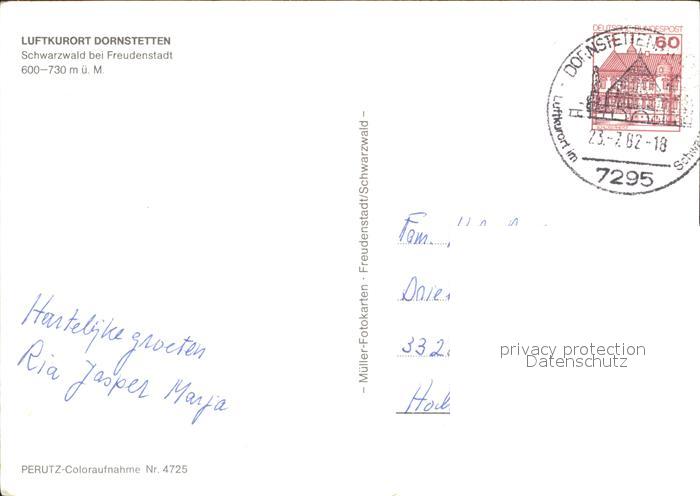 LUFTKURORT DORNSTETTEN
Schwarzwald bei Freudenstadt
600—730 m ü. M.
DEUTSCHE BUNDESPOST
60
DORNSTETTEN
Luftkurort im
Schwarz
23.-7.82-18
7295
– Müller-Fotokarten · Freudenstadt/Schwarzwald –
Fam.
Drie
332
Hoc
privacy protection
Datenschutz
Hartelijke groeten
Ria Jasper Marja
PERUTZ-Coloraufnahme Nr. 4725